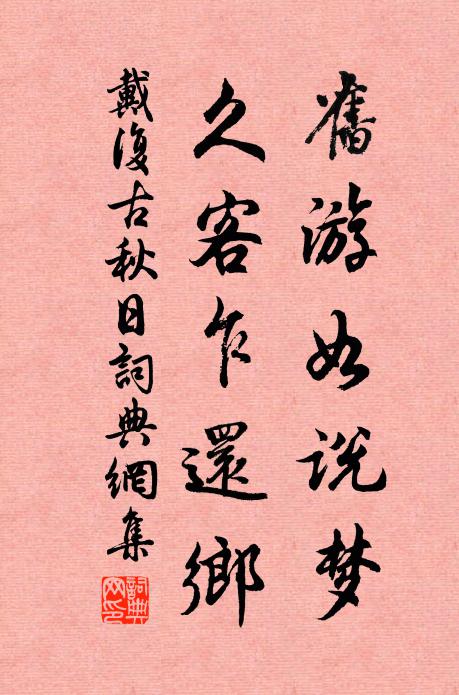 舊游如説梦
久客乍還鄉
戴復古秋日詞典網集
詞典网印